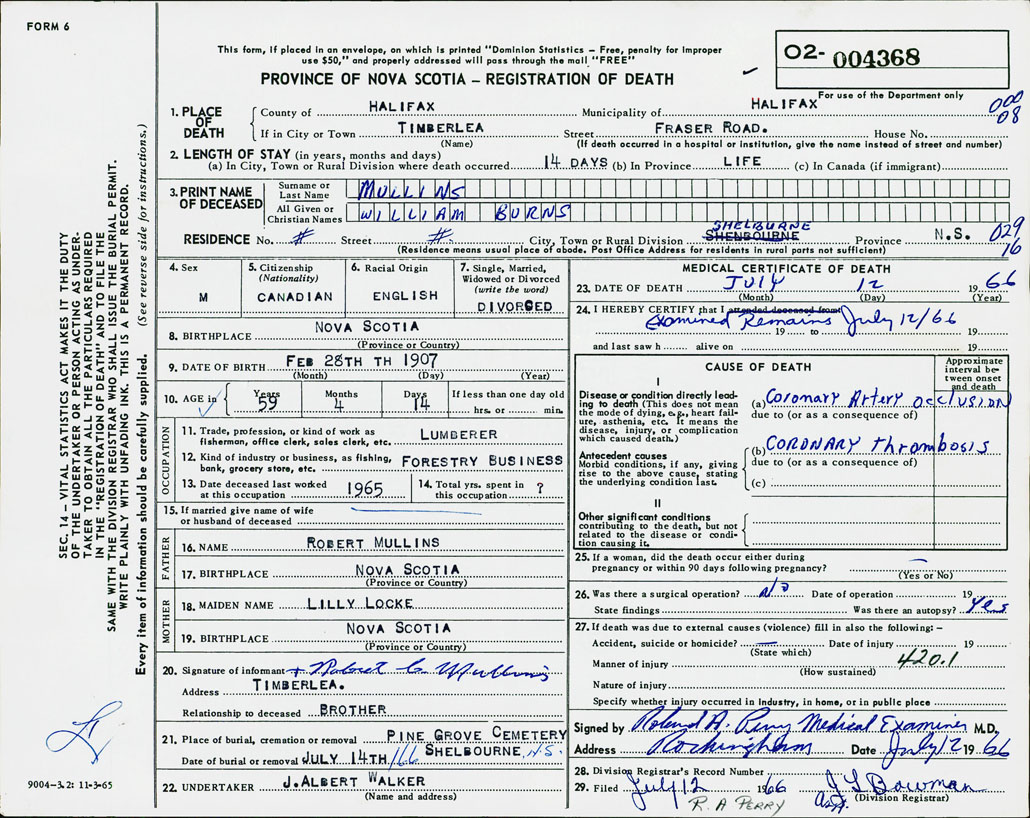 FORM 6
This form, if placed in an envelope, on which is printed "Dominion Statistics – Free, penalty for improper
use $50," and properly addressed will pass through the mail "FREE"
PROVINCE OF NOVA SCOTIA – REGISTRATION OF DEATH
O2- 004368
For use of the Department only
000
08
1. PLACE OF DEATH
County of HALIFAX Municipality of HALIFAX
If in City or Town TIMBERLEA Street FRASER ROAD. House No.
(Name) (If death occurred in a hospital or institution, give the name instead of street and number)
2. LENGTH OF STAY (in years, months and days)
(a) In City, Town or Rural Division where death occurred 14 DAYS (b) In Province LIFE (c) In Canada (if immigrant)
3. PRINT NAME OF DECEASED
Surname or Last Name MULLINS
All Given or Christian Names WILLIAM BURNS
SHELBURNE
RESIDENCE No. # Street #. City, Town or Rural Division SHENBOURNE Province N.S. 029
16
(Residence means usual place of abode. Post Office Address for residents in rural parts not sufficient)
4. Sex
M
5. Citizenship
(Nationality)
CANADIAN
6. Racial Origin
ENGLISH
7. Single, Married,
Widowed or Divorced
(write the word)
DIVORCED
8. BIRTHPLACE NOVA SCOTIA
(Province or Country)
9. DATE OF BIRTH FEB 28TH TH 1907
(Month) (Day) (Year)
10. AGE in Years 59 Months 4 Days 14 If less than one day old
hrs. or min.
OCCUPATION
11. Trade, profession, or kind of work as
fisherman, office clerk, sales clerk, etc. LUMBERER
12. Kind of industry or business, as fishing,
bank, grocery store, etc. FORESTRY BUSINESS
13. Date deceased last worked
at this occupation 1965
14. Total yrs. spent in
this occupation ?
15. If married give name of wife
or husband of deceased
FATHER
16. NAME ROBERT MULLINS
17. BIRTHPLACE NOVA SCOTIA
(Province or Country)
MOTHER
18. MAIDEN NAME LILLY LOCKE
19. BIRTHPLACE NOVA SCOTIA
(Province or Country)
20. Signature of informant + Robert C. Mullins
Address TIMBERLEA.
Relationship to deceased BROTHER
21. Place of burial, cremation or removal PINE GROVE CEMETERY
SHELBOURNE, N.S.
Date of burial or removal JULY 14TH /66
22. UNDERTAKER J. ALBERT WALKER
(Name and address)
MEDICAL CERTIFICATE OF DEATH
23. DATE OF DEATH JULY 12 1966
(Month) (Day) (Year)
24. I HEREBY CERTIFY that I attended deceased from
Examined Remains July 12/66
19 to 19
and last saw h alive on 19
CAUSE OF DEATH
Approximate
interval be-
tween onset
and death
I
Disease or condition directly lead-
ing to death (This does not mean
the mode of dying, e.g., heart fail-
ure, asthenia, etc. It means the
disease, injury, or complication
which caused death.)
(a) Coronary Artery occlusion
due to (or as a consequence of)
Antecedent causes
Morbid conditions, if any, giving
rise to the above cause, stating
the underlying condition last.
(b) CORONARY thrombosis
due to (or as a consequence of)
(c)
II
Other significant conditions
contributing to the death, but not
related to the disease or condi-
tion causing it.
25. If a woman, did the death occur either during
pregnancy or within 90 days following pregnancy?
(Yes or No)
26. Was there a surgical operation? No Date of operation 19
State findings Was there an autopsy? Yes
27. If death was due to external causes (violence) fill in also the following: –
Accident, suicide or homicide? Date of injury 19
(State which)
Manner of injury 420.1
(How sustained)
Nature of injury
Specify whether injury occurred in industry, in home, or in public place
Signed by Roland A. Perry Medical Examiner M.D.
Address Rockingham Date July 12 1966
28. Division Registrar's Record Number
29. Filed July 12 1966 J L Bowman
(Division Registrar)
R. A PERRY
SEC. 14 – VITAL STATISTICS ACT MAKES IT THE DUTY
OF THE UNDERTAKER OR PERSON ACTING AS UNDER-
TAKER TO OBTAIN ALL THE PARTICULARS REQUIRED
IN THE "REGISTRATION OF DEATH" AND TO FILE THE
SAME WITH THE DIVISION REGISTRAR WHO SHALL ISSUE THE BURIAL PERMIT.
WRITE PLAINLY WITH UNFADING INK. THIS IS A PERMANENT RECORD.
Every item of information should be carefully supplied. (See reverse side for instructions.)
9004-3.2: 11-3-65